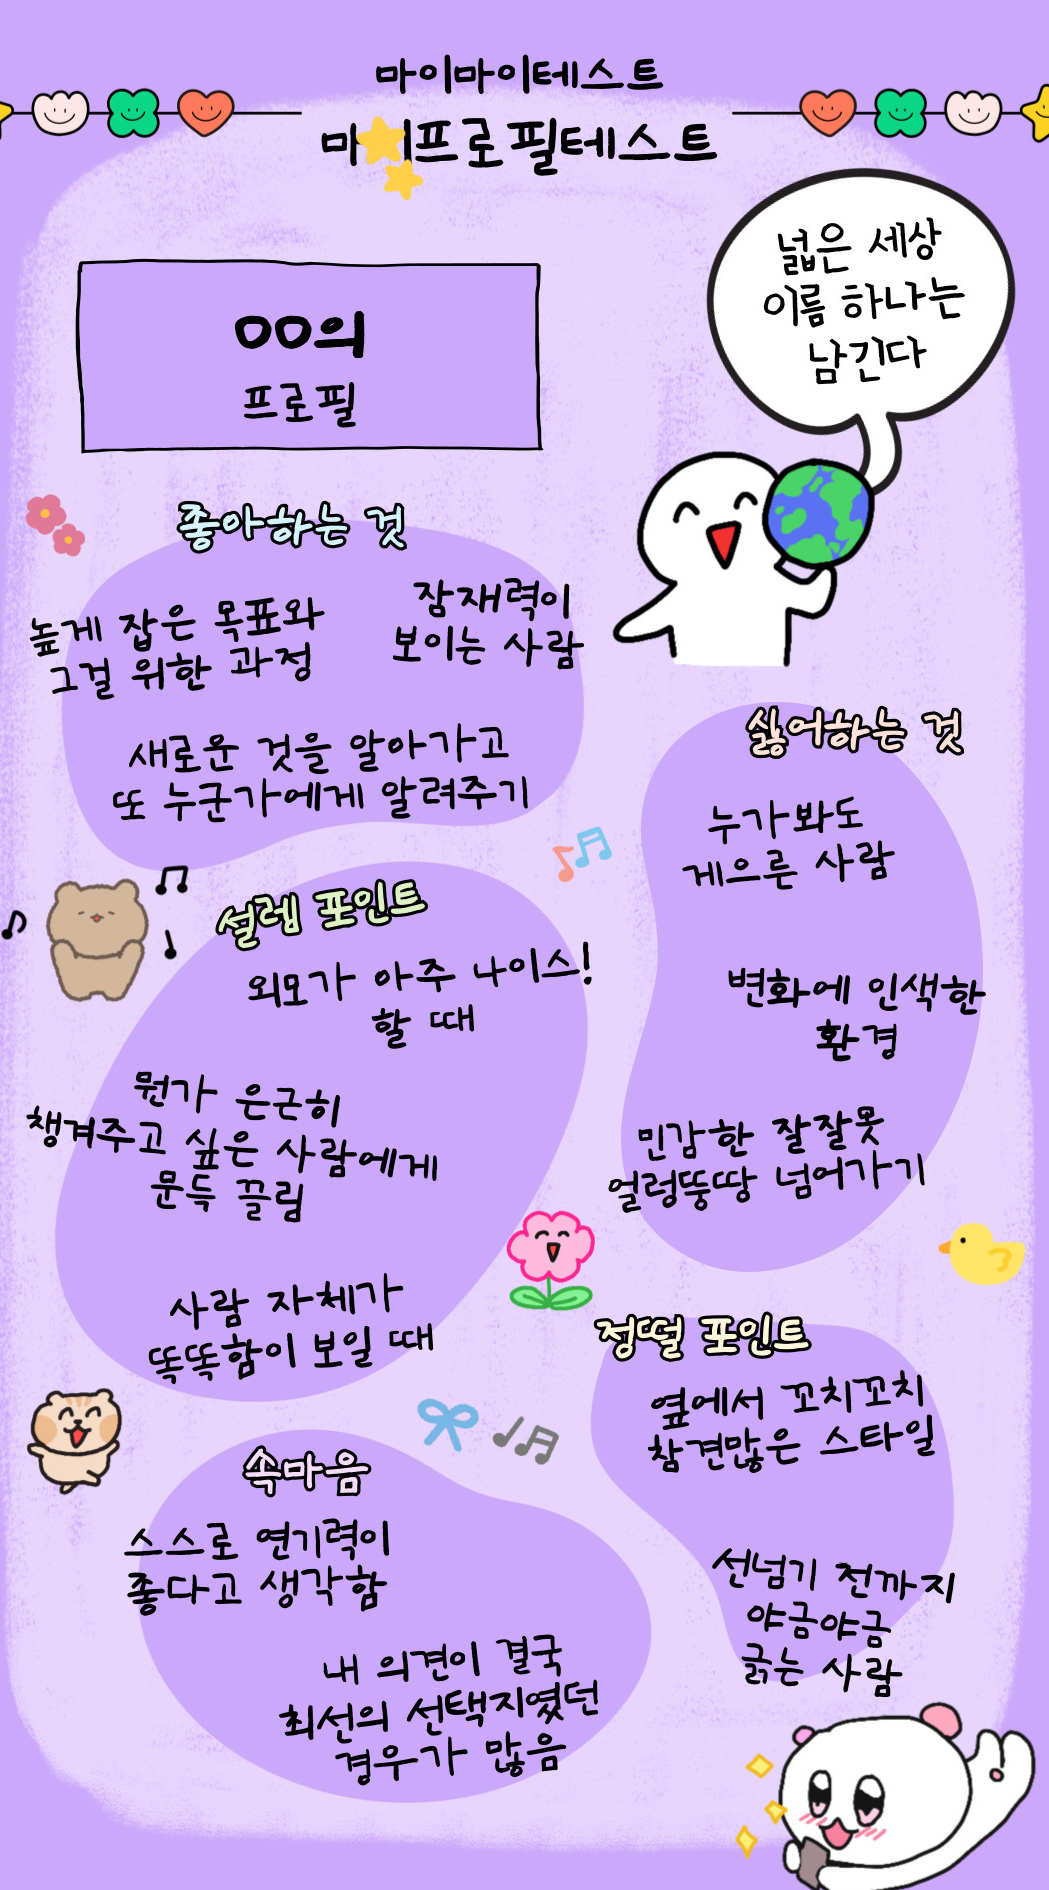 마이마이테스트
마이프로필테스트
넓은 세상
이름 하나는
남긴다
OO의
프로필
좋아하는 것
높게 잡은 목표와
그걸 위한 과정
잠재력이
보이는 사람
새로운 것을 알아가고
또 누군가에게 알려주기
싫어하는 것
누가봐도
게으른 사람
변화에 인색한
환경
민감한 잘잘못
얼렁뚱땅 넘어가기
설렘 포인트
외모가 아주 나이스!
할 때
뭔가 은근히
챙겨주고 싶은 사람에게
문득 끌림
사람 자체가
똑똑함이 보일 때
정떨 포인트
옆에서 꼬치꼬치
참견많은 스타일
선넘기 전까지
야금야금
긁는 사람
속마음
스스로 연기력이
좋다고 생각함
내 의견이 결국
최선의 선택지였던
경우가 많음